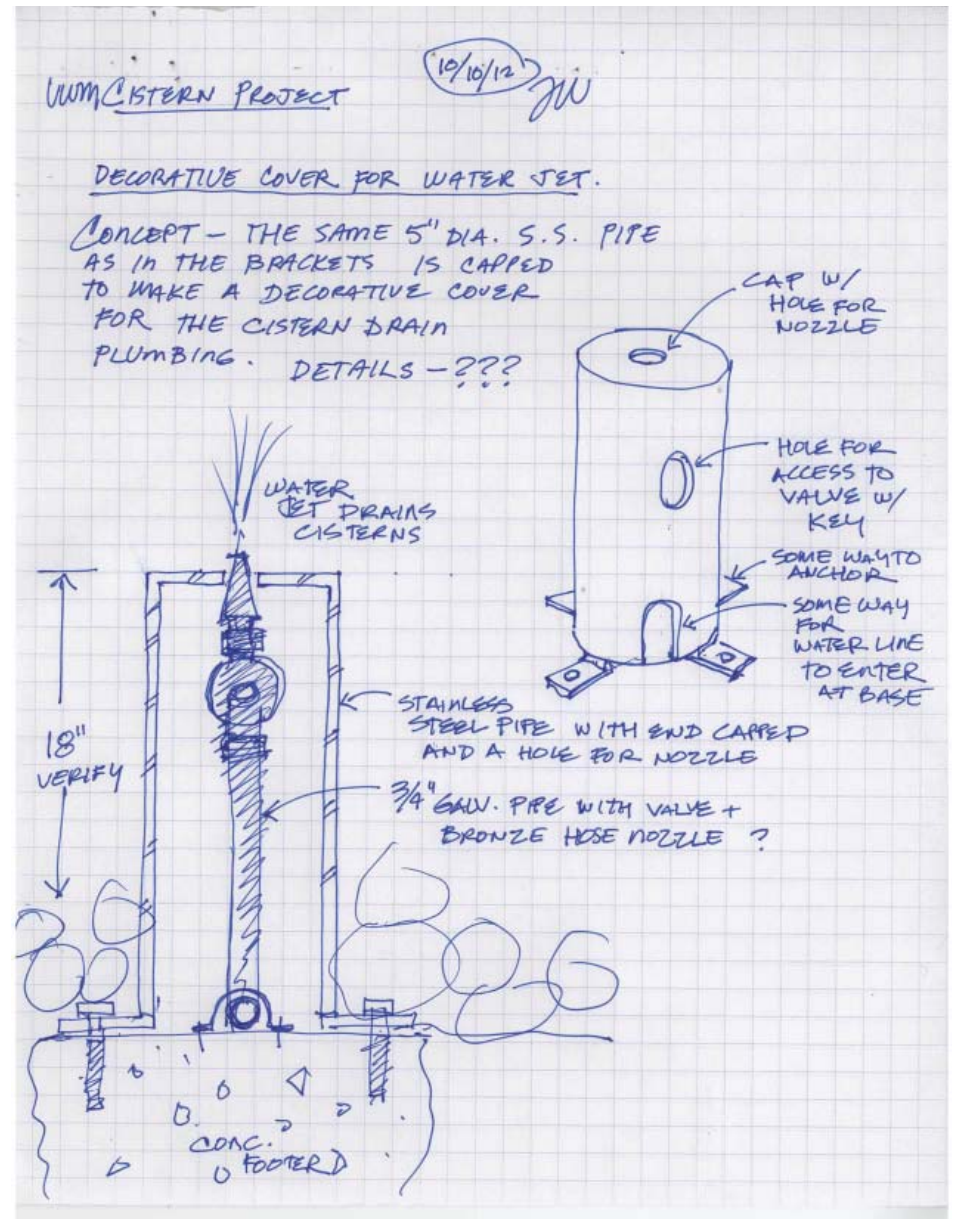 10/10/12 JW
UWM CISTERN PROJECT
DECORATIVE COVER FOR WATER JET.
CONCEPT - THE SAME 5" DIA. S.S. PIPE
AS IN THE BRACKETS IS CAPPED
TO MAKE A DECORATIVE COVER
FOR THE CISTERN DRAIN
PLUMBING. DETAILS - ???
CAP W/
HOLE FOR
NOZZLE
HOLE FOR
ACCESS TO
VALVE W/
KEY
SOME WAY TO
ANCHOR
SOME WAY
FOR
WATER LINE
TO ENTER
AT BASE
WATER
JET DRAINS
CISTERNS
18"
VERIFY
STAINLESS
STEEL PIPE WITH END CAPPED
AND A HOLE FOR NOZZLE
3/4" GALV. PIPE WITH VALVE +
BRONZE HOSE NOZZLE ?
CONC.
FOOTER